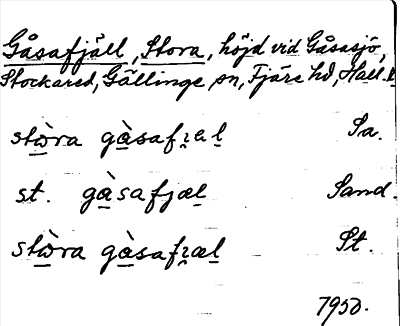 Gåsafjäll, Stora, höjd vid Gåsasjö,
Stockared, Gällinge sn, Fjäre hd, Hall. l.
stὼra gàsafɪ̯al Sa.
st. gàsafjæl Sand.
stὼra gàsafɪ̯æl St.
1950.